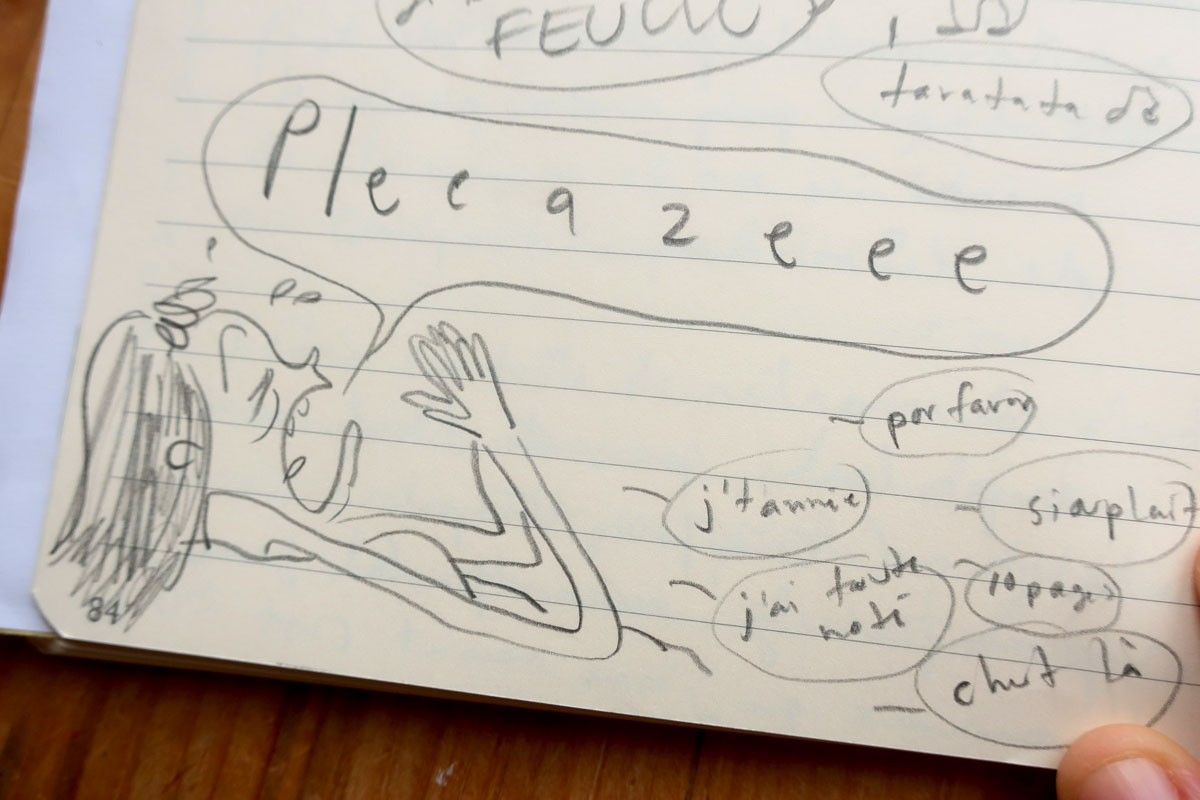 taratata
Pleeazeee
por favor
j'tannie
siouplait
j'ai toute
noté
10 pages
chut là
84